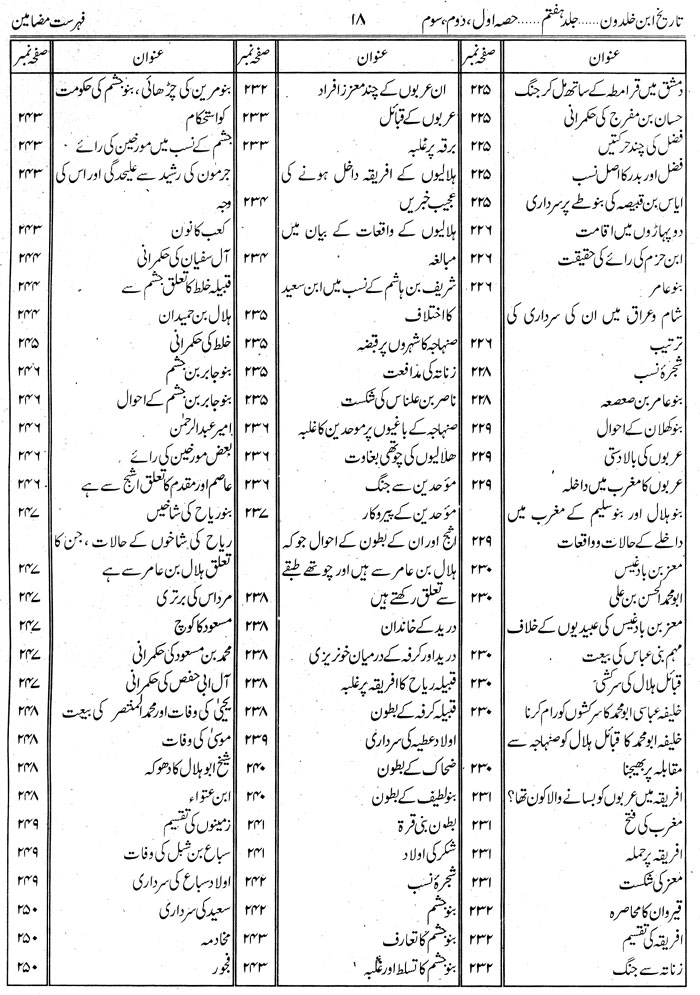 تاریخ ابن خلدون ...... جلد ہفتم ...... حصہ اول، دوم، سوم
۱۸
فہرست مضامین
عنوان
صفحہ نمبر
دمشق میں قرامطہ کے ساتھ مل کر جنگ ۲۲۵
حسان بن مفرج کی حکمرانی ۲۲۵
فضل کی چند حرکتیں ۲۲۵
فضل اور بدر کا اصل نسب ۲۲۵
ایاس بن قبیصہ کی بنو طے پر سرداری ۲۲۵
دو پہاڑوں میں اقامت ۲۲۶
ابن حزم کی رائے کی حقیقت ۲۲۶
بنو عامر ۲۲۶
شام وعراق میں ان کی سرداری کی
ترتیب ۲۲۶
شجرۂ نسب ۲۲۸
بنو عامر بن صعصعہ ۲۲۸
بنو کھلان کے احوال ۲۲۹
عربوں کی بالادستی ۲۲۹
عربوں کا مغرب میں داخلہ ۲۲۹
بنو ہلال اور بنو سلیم کے مغرب میں
داخلے کے حالات و واقعات ۲۲۹
معز بن بادغیس ۲۳۰
ابو محمد الحسن بن علی ۲۳۰
معز بن بادغیس کی عبیدیوں کے خلاف
مہم بنی عباس کی بیعت ۲۳۰
قبائل ہلال کی سرکشی ۲۳۰
خلیفہ عباسی ابو محمد کا سرکشوں کو رام کرنا ۲۳۰
خلیفہ ابو محمد کا قبائل ہلال کو صنہاجہ سے
مقابلہ پر بھیجنا ۲۳۰
افریقہ میں عربوں کو بسانے والا کون تھا؟ ۲۳۱
مغرب کی فتح ۲۳۱
افریقہ پر حملہ ۲۳۱
معز کی شکست ۲۳۱
قیروان کا محاصرہ ۲۳۲
افریقہ کی تقسیم ۲۳۲
زناتہ سے جنگ ۲۳۲
عنوان
صفحہ نمبر
ان عربوں کے چند معزز افراد ۲۳۲
عربوں کے قبائل ۲۳۳
برقہ پر غلبہ ۲۳۳
ہلالیوں کے افریقہ داخل ہونے کی
عجیب خبریں ۲۳۴
ہلالیوں کے واقعات کے بیان میں
مبالغہ ۲۳۴
شریف بن ہاشم کے نسب میں ابن سعید
کا اختلاف ۲۳۵
صنہاجہ کا شہروں پر قبضہ ۲۳۵
زناتہ کی مدافعت ۲۳۵
ناصر بن علناس کی شکست ۲۳۵
صنہاجہ کے باغیوں پر موحدین کا غلبہ ۲۳۶
ھلالیوں کی چوتھی بغاوت ۲۳۶
مؤحدین سے جنگ ۲۳۶
مؤحدین کے پیروکار ۲۳۷
اثبج اور ان کے بطون کے احوال جو کہ
ہلال بن عامر سے ہیں اور چوتھے طبقے
سے تعلق رکھتے ہیں ۲۳۸
درید کے خاندان ۲۳۸
درید اور کرفہ کے درمیان خونریزی ۲۳۸
قبیلہ ریاح کا افریقہ پر غلبہ ۲۳۸
قبیلہ کرفہ کے بطون ۲۳۸
اولاد عطیہ کی سرداری ۲۳۹
ضحاک کے بطون ۲۴۰
بنو لطیف کے بطون ۲۴۰
بطون بنی قرۃ ۲۴۱
شکر کی اولاد ۲۴۱
شجرۂ نسب ۲۴۲
بنو جشم ۲۴۲
بنو جشم کا تعارف ۲۴۳
بنو جشم کا تسلط اور غلبہ ۲۴۳
عنوان
صفحہ نمبر
بنو مرین کی چڑھائی، بنو جشم کی حکومت
کو استحکام ۲۴۳
جشم کے نسب میں مورخین کی رائے ۲۴۳
جرمون کی رشید سے علیحدگی اور اس کی ۲۴۳
وجہ
کعب کانون ۲۴۳
آل سفیان کی حکمرانی ۲۴۴
قبیلہ خلط کا تعلق جشم سے ۲۴۴
ہلال بن حمیدان ۲۴۴
خلط کی حکمرانی ۲۴۵
بنو جابر بن جشم ۲۴۶
بنو جابر بن جشم کے احوال ۲۴۶
امیر عبدالرحمٰن ۲۴۶
بعض مورخین کی رائے ۲۴۶
عاصم اور مقدم کا تعلق اثبج سے ہے ۲۴۶
بنو ریاح کی شاخیں ۲۴۷
ریاح کی شاخوں کے حالات، جن کا
تعلق ہلال بن عامر سے ہے ۲۴۷
مرداس کی برتری ۲۴۷
مسعود کا کوچ ۲۴۷
محمد بن مسعود کی حکمرانی ۲۴۷
آل ابی حفص کی حکمرانی ۲۴۷
یحییٰ کی وفات اور محمد المنتصر کی بیعت ۲۴۸
موسیٰ کی وفات ۲۴۸
شیخ ابو ہلال کا دھوکہ ۲۴۸
ابن عتواء ۲۴۸
زمینوں کی تقسیم ۲۴۹
سباع بن شبل کی وفات ۲۴۹
اولاد سباع کی سرداری ۲۴۹
سعید کی سرداری ۲۵۰
مخادمہ ۲۵۰
فجور ۲۵۰